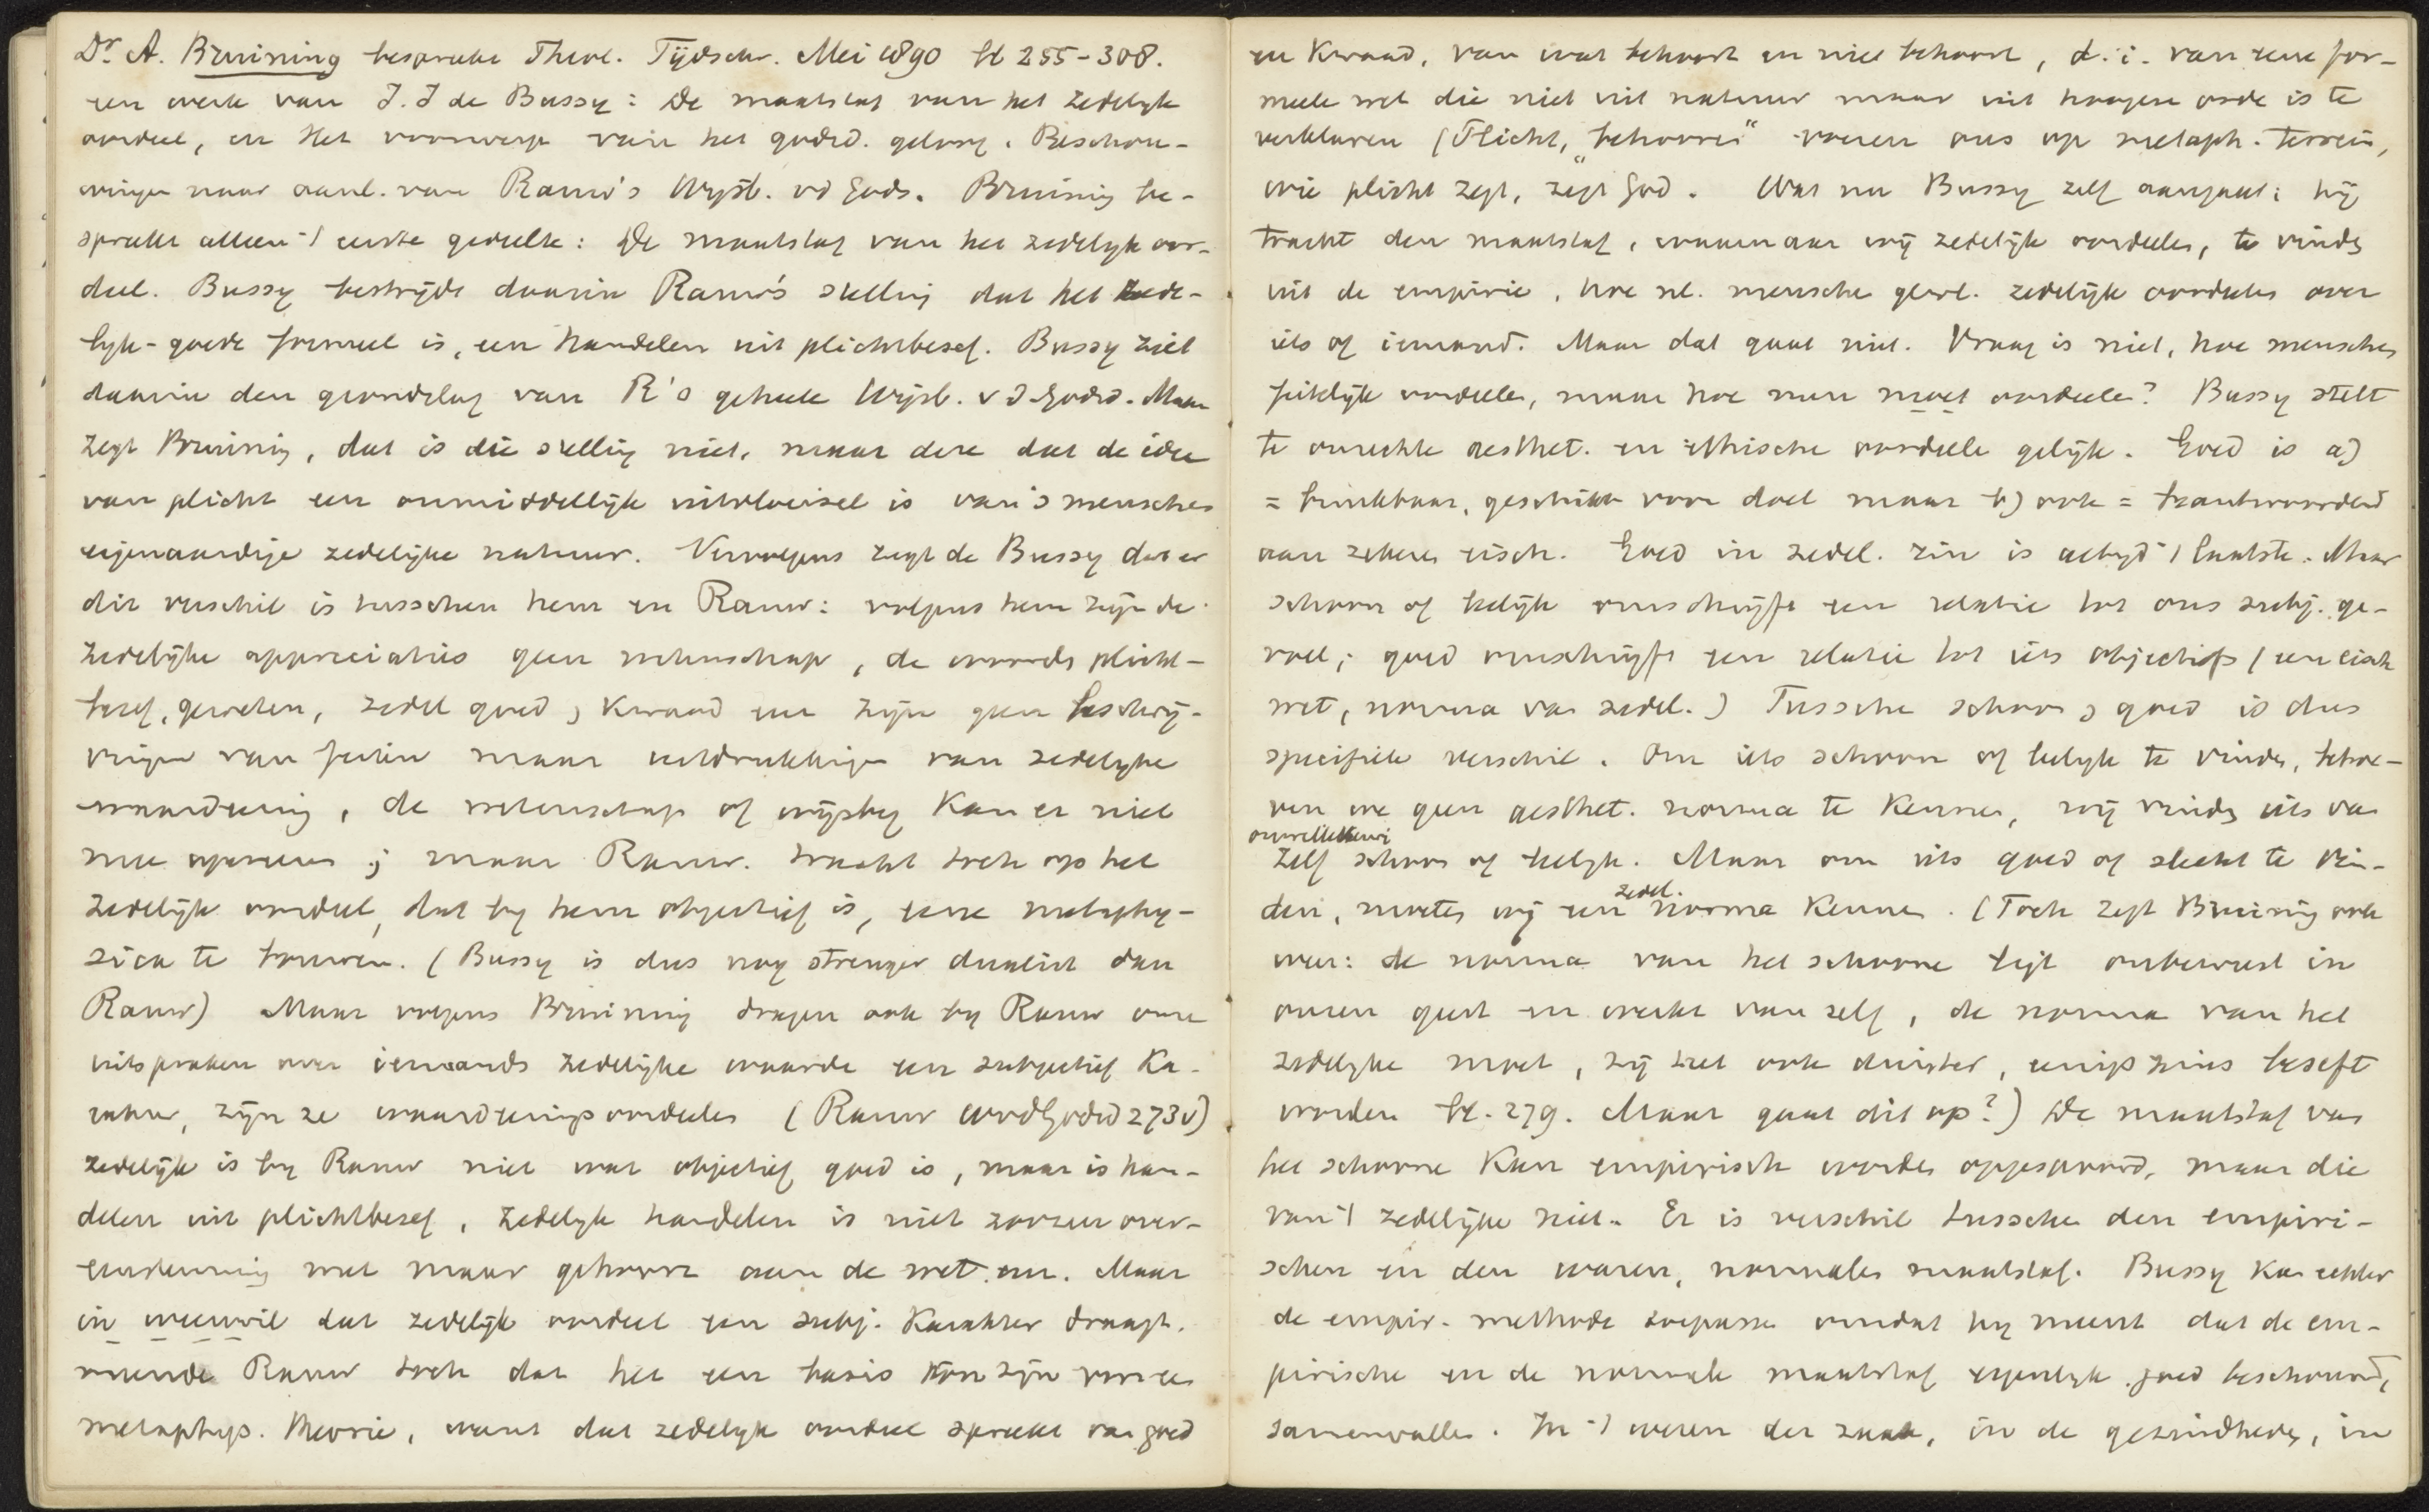 Dr. A. Bruining bespreekt Theol. Tijdschr. Mei 1890 bl 255-308.
een werk van J. J de Bussy: De maatstaf van het zedelijk
oordeel, en Het voorwerp van het godsd. geloof. Beschou-
wingen naar aanl. van Rauw's Wijsb. vd Gods. Bruining be-
spreekt alleen 't eerste gedeelte: De maatstaf van het zedelyk oor-
deel. Bussy bestrijdt daarin Rauw's stelling dat het zede-
lyk-goede formeel is, een handelen uit plichtbesef. Bussy ziet
daarin den grondslag van R's geheele Wijsb. v d Godsd. Maar
zegt Bruining, dat is die stelling niet, maar deze dat de idee
van plicht een onmiddellijk uitvloeisel is van 's menschen
eigenaardige zedelijke natuur. Vervolgens zegt de Bussy dat er
dit verschil is tusschen hem en Rauw: volgens hem zijn de
zedelijke appreciaties geen wetenschap, de woorden plicht-
besef, geweten, zedel goed, kwaad enz zijn geen beschrij-
vingen van feiten maar uitdrukkingen van zedelyke
waardeering, de wetenschap of wijsbeg kan er niet
mee opereeren; maar Rauw. tracht toch op het
zedelijk oordeel, dat by hem objectief is, eene metaphy-
sica te bouwen. (Bussy is dus nog strenger dualist dan
Rauw) Maar volgens Bruining dragen ook by Rauw onze
uitspraken over iemands zedelijke waarde een subjectief ka-
rakter, zijn ze waardeeringsoordeelen (Rauw WvdGodsd 273v)
zedelijk is by Rauw niet wat objectief goed is, maar is han-
delen uit plichtbesef, zedelyk handelen is niet zoozeer over-
eenstemming met maar gehoorz aan de wet enz. Maar
in weerwil dat zedelijk oordeel een subj. karakter draagt.
meende Rauw toch dat het een basis kon zijn voor een
metaphys. theorie, want dat zedelyk oordeel spreekt van goed
en kwaad, van wat behoort en niet behoort, d. i. van eene for-
meele wet die niet uit natuur maar uit hoogere orde is te
verklaren (Plicht, "behooren" voeren ons op metaph. terrein,
wie plicht zegt, zegt God. Wat nu Bussy zelf aangaat: hij
tracht den maatstaf, waarnaar wij zedelijk oordeelen, te vinden
uit de empirie, hoe nl. menschen gewl. zedelijk oordeelen over
iets of iemand. Maar dat gaat niet. Vraag is niet, hoe menschen
feitelijk oordeelen, maar hoe men moet oordeelen? Bussy stelt
te onrechte aesthet. en ethische oordeelen gelijk. Goed is a)
= bruikbaar, geschikt voor doel maar b) ook = beantwoordend
aan zekeren eisch. Goed in zedel. zin is altyd 't laatste. Maar
schoon of leelijk omschrijft een relatie tot ons subj. ge-
voel; goed omschrijft een relatie tot iets objectiefs (een eisch
wet, norma van zedel.) Tusschen schoon, goed is dus
specifiek verschil. Om iets schoon of leelyk te vinden, behoe-
ven we geen aesthet. norma te kennen, wij vinden iets van
onwillekeurig
zelf schoon of leelyk. Maar om iets goed of slecht te vin-
zedel.
den, moeten wij een norma kennen. (Toch zegt Bruining ook
weer: de norma van het schoone ligt onbewust in
onzen geest en werkt van zelf, de norma van het
zedelyke moet, zij het ook duister, eenigszins beseft
worden bl. 279. Maar gaat dit op?) De maatstaf van
het schoone kan empirisch worden opgespoord, maar die
van 't zedelijke niet. Er is verschil tusschen den empiri-
schen en den waren, normalen maatstaf. Bussy kan echter
de empir. methode toepassen omdat hy meent dat de em-
pirische en de normale maatstaf eigenlyk, goed beschouwd,
samenvallen. In 't wezen der zaak, in de gezindheden, in